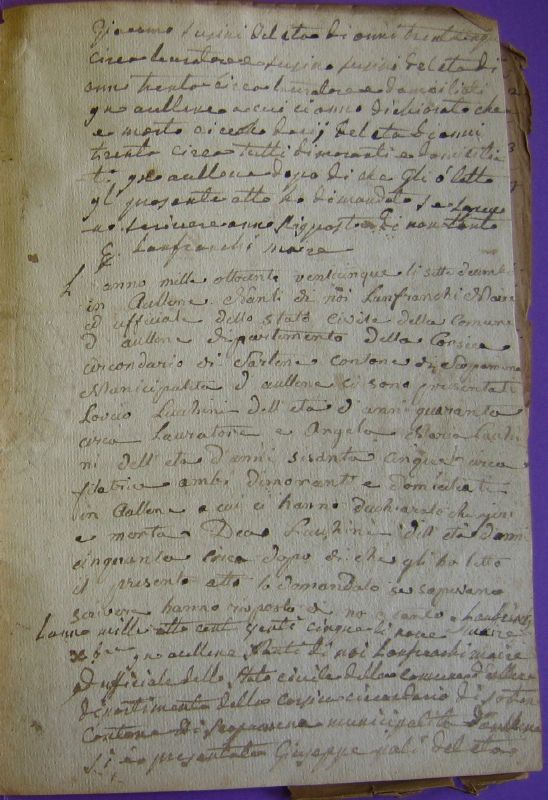 Giacomo susini del eta di anni trentacinque
circa lauratore e susino susini del eta di
anni trenta circa lauratore e domiciliati
gn aullene a cui ci anno dichiarato che
e morto del eta di anni
trenta circa tutti dimoranti e domicilia
ti gn aullene dopo di che gli o letto
gl presente atto ho dimandato se sapeva
no scrivere anno risposto di non
Lanfranchi maire
L anno mille ottocento venticinque li sette decembre
in Aullene avanti di noi Lanfranchi Maire
ed ufficiale dello stato civile della Comune
d aullene dipartimento della Corsica
circondario di Sartene cantone di
Municipalita d aullene ci sono presentati
Lucchini dell eta d anni quaranta
circa Lauratore e Angela Maria Lucchi
ni dell eta d'anni sisanta cinque circa
filatrice ambi dimoranti e domiciliati
in Aullene a cui ci hanno dichiarato che
e morta Dea Lucchini dell eta danni
cinquanta circa dopo di che gli ho letto
il presente atto lo domandato se sapevano
scrivere hanno risposto di no Lanfranchi
Lanno mille otto cent venti cinque li nove maire
xbre gn aullene avanti di noi Lanfranchi maire
ed ufficiale dello stato civile della comune d'aullene
dipartimento della corsica circondario di sartene
Cantone di municipalita d'aullene
si è presentato Giuseppe del eta